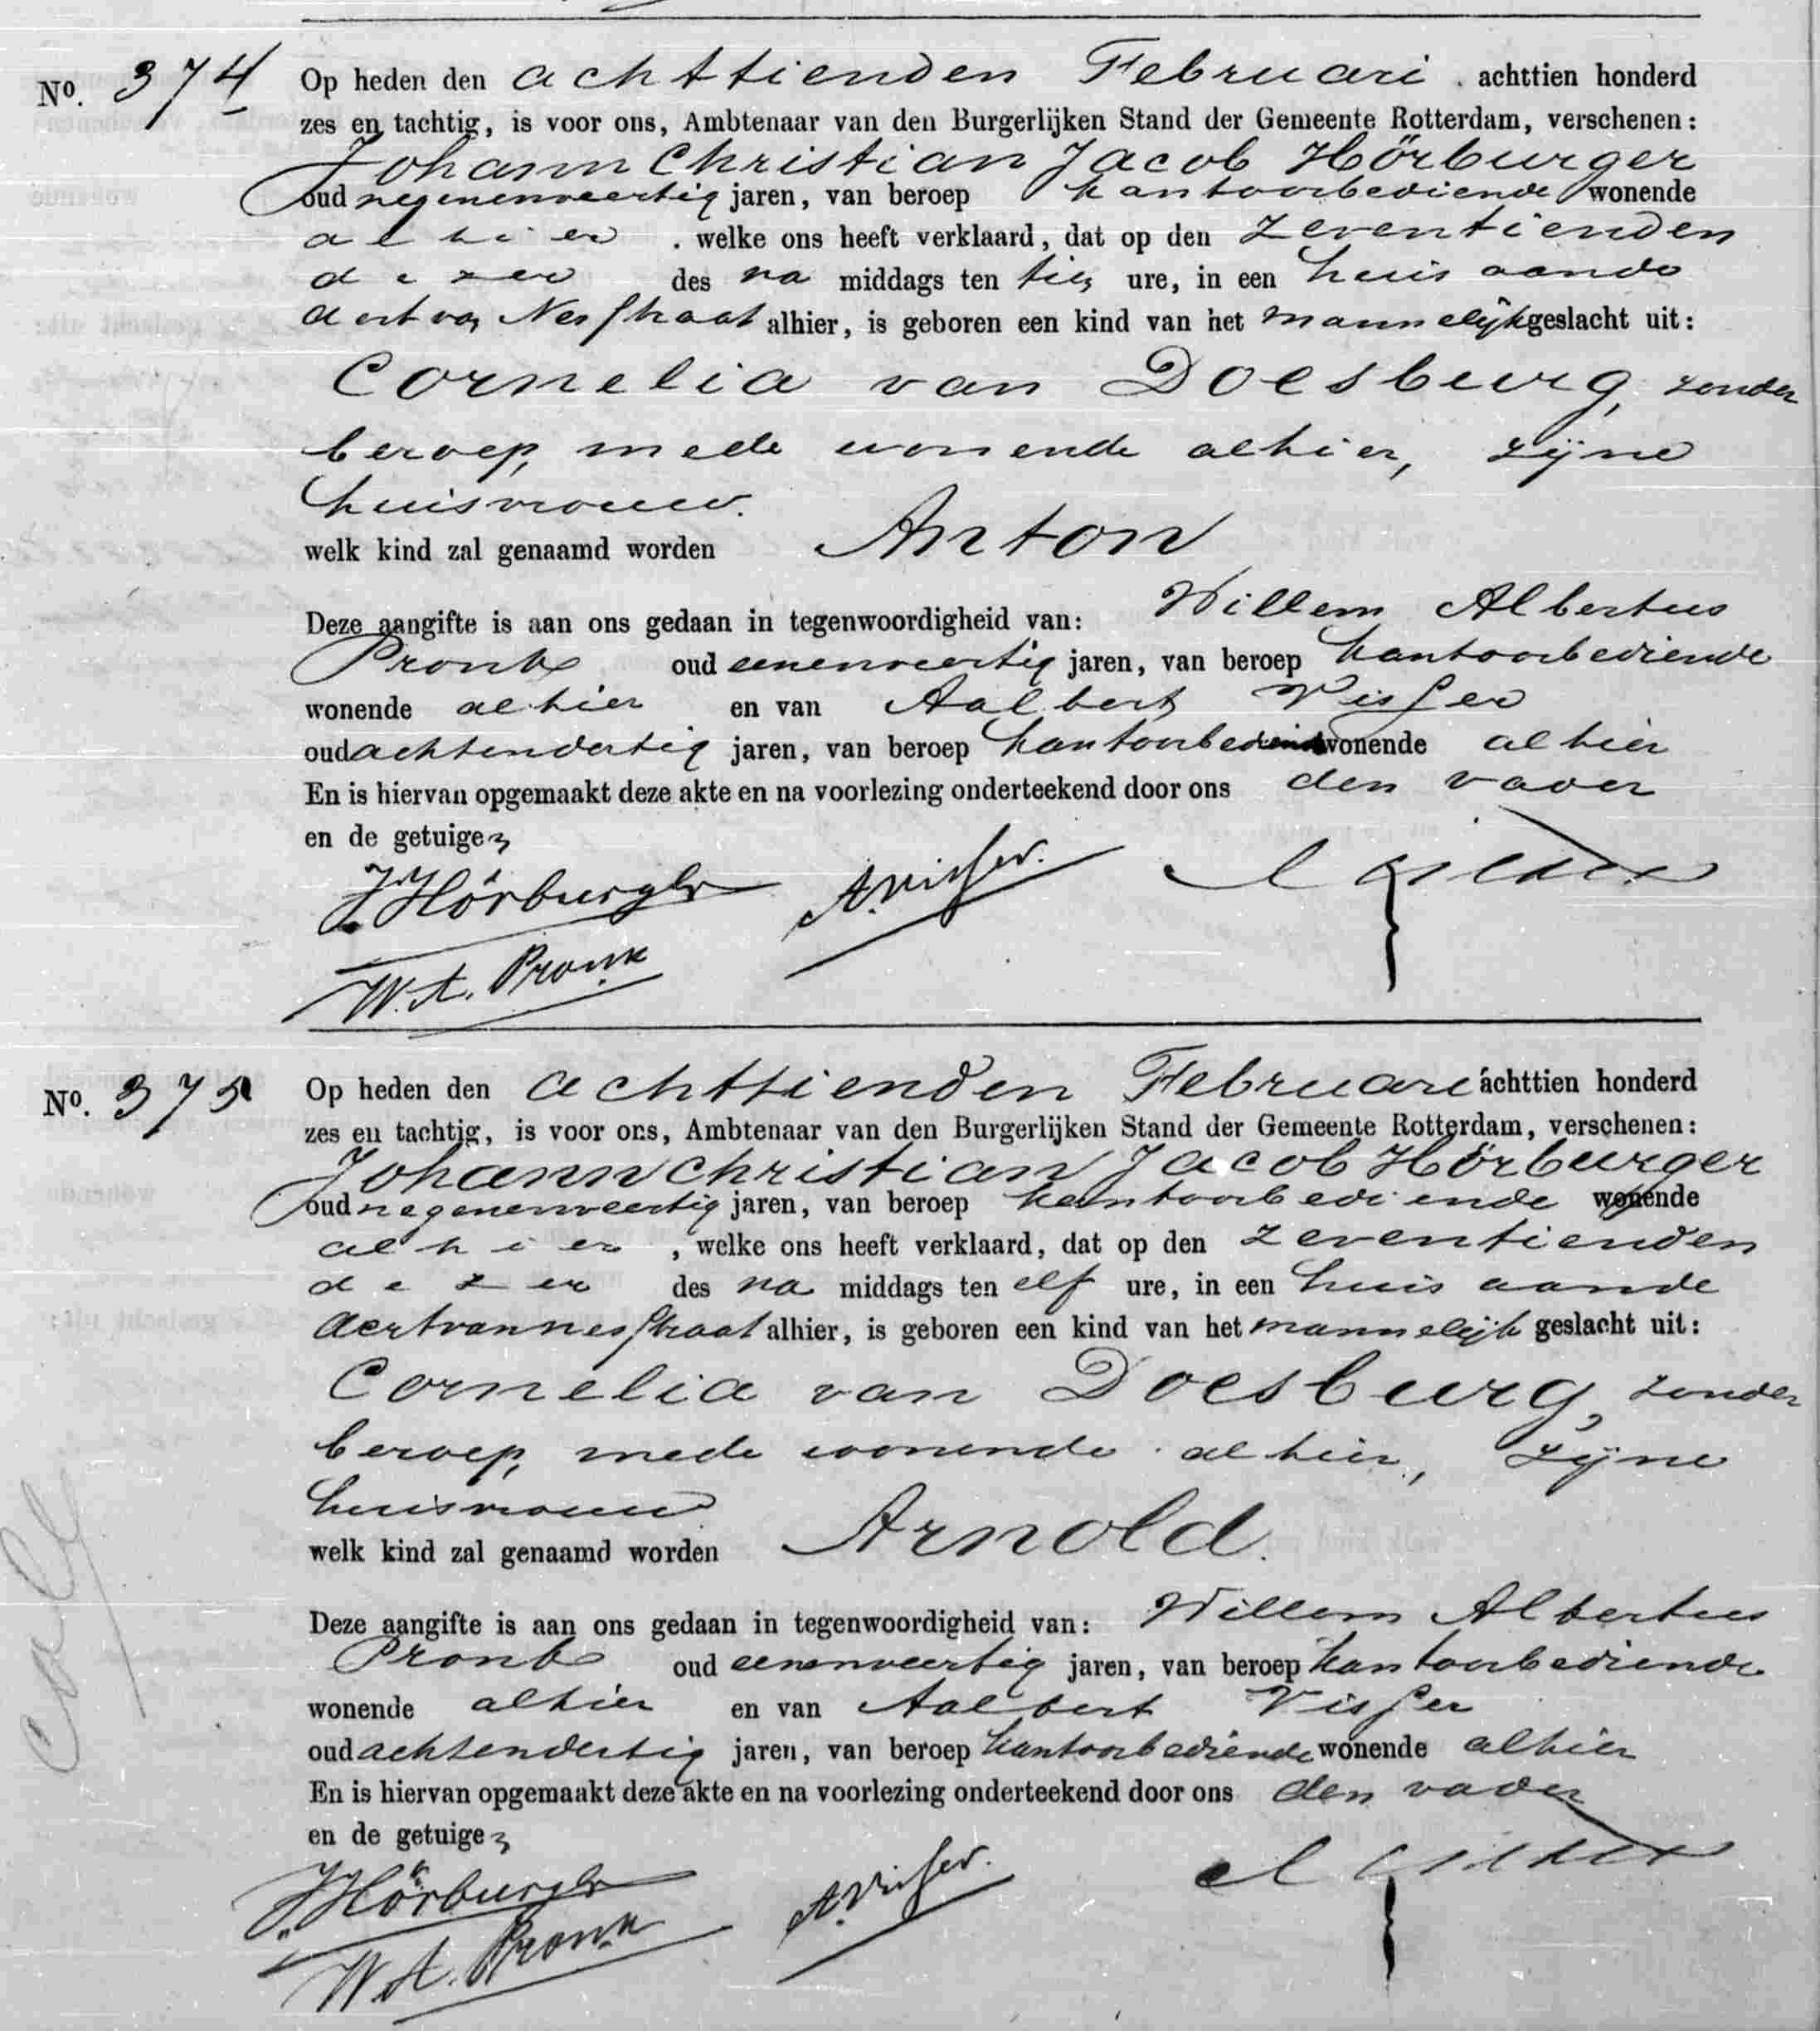 No. 374 Op heden den achttienden Februari achttien honderd
zes en tachtig, is voor ons, Ambtenaar van den Burgerlijken Stand der Gemeente Rotterdam, verschenen:
Johann Christian Jacob Hörburger
oud negenenveertig jaren, van beroep kantoorbediende wonende
alhier , welke ons heeft verklaard, dat op den zeventienden
dezer des na middags ten tien ure, in een huis aande
Aert van Nesstraat alhier, is geboren een kind van het mannelijk geslacht uit:
Cornelia van Doesburg, zonder
beroep, mede wonende alhier, zijne
huisvrouw.
welk kind zal genaamd worden Anton
Deze aangifte is aan ons gedaan in tegenwoordigheid van: Willem Albertus
Pronk oud eenenveertig jaren, van beroep kantoorbediende
wonende alhier en van Aalbert Visser
oud achtendertig jaren, van beroep kantoorbediende wonende alhier
En is hiervan opgemaakt deze akte en na voorlezing onderteekend door ons den vader
en de getuigen
J Hörburger A. Visser.
W. A. Pronk
No. 375 Op heden den achttienden Februari achttien honderd
zes en tachtig, is voor ons, Ambtenaar van den Burgerlijken Stand der Gemeente Rotterdam, verschenen:
Johann Christian Jacob Hörburger
oud negenenveertig jaren, van beroep kantoorbediende wonende
alhier , welke ons heeft verklaard, dat op den zeventienden
dezer des na middags ten elf ure, in een huis aande
Aert van Nesstraat alhier, is geboren een kind van het mannelijk geslacht uit:
Cornelia van Doesburg, zonder
beroep, mede wonende alhier, zijne
huisvrouw
welk kind zal genaamd worden Arnold.
Deze aangifte is aan ons gedaan in tegenwoordigheid van: Willem Albertus
Pronk oud eenenveertig jaren, van beroep kantoorbediende
wonende alhier en van Aalbert Visser
oud achtendertig jaren, van beroep kantoorbediende wonende alhier
En is hiervan opgemaakt deze akte en na voorlezing onderteekend door ons den vader
en de getuigen
J Hörburger A. Visser.
W. A. Pronk